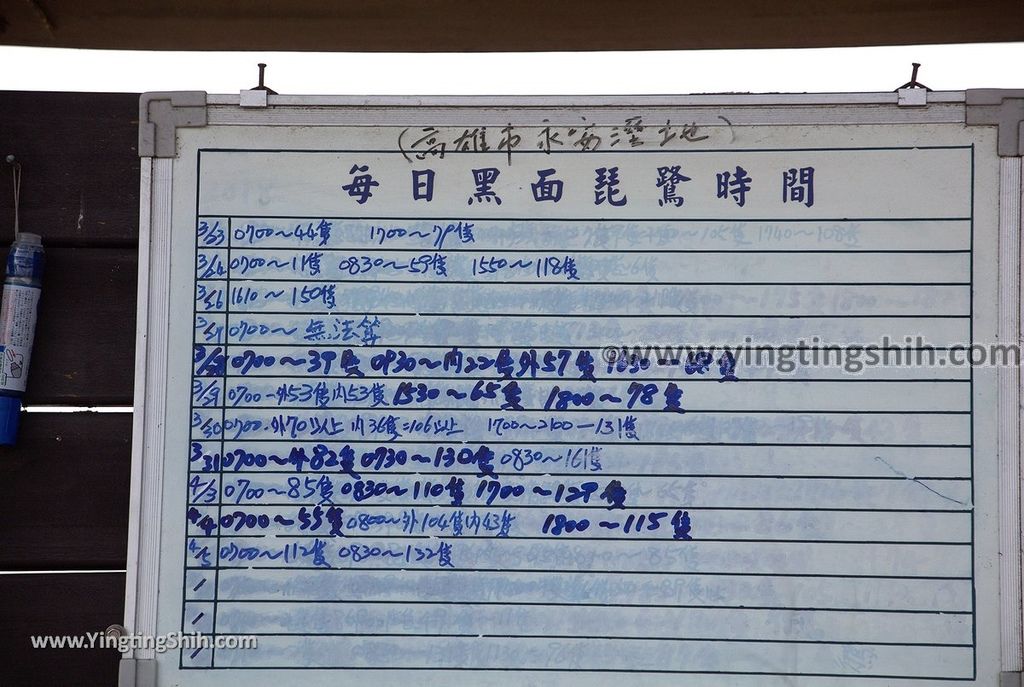 (高雄市永安溼地)
每日黑面琵鷺時間
3/23 0700～44隻 1700～79隻
3/24 0700～11隻 0830～59隻 1550～118隻
3/26 1610～150隻
3/27 0700～無法算
3/28 0700～39隻 0930～內22隻外57隻 1630
3/29 0700-外53隻內53隻 1530～65隻 1800～78隻
3/30 0700-外70以上 內36隻=106以上 1700～2100—131隻
3/31 0700～482隻 0730～130隻 0830～161隻
4/3 0700～85隻 0830～110隻 1700～129隻
4/4 0700～55隻 0800～外104隻內43隻 1800～115隻
4/5 0700～112隻 0830～132隻
/
/
/
©www.yingtingshih.com
www.YingtingShih.com